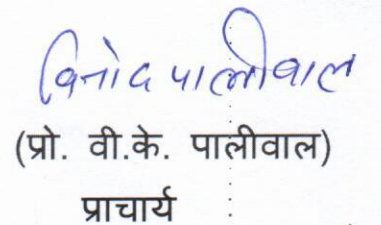 विनोद पालीवाल
(प्रो. वी.के. पालीवाल)
प्राचार्य